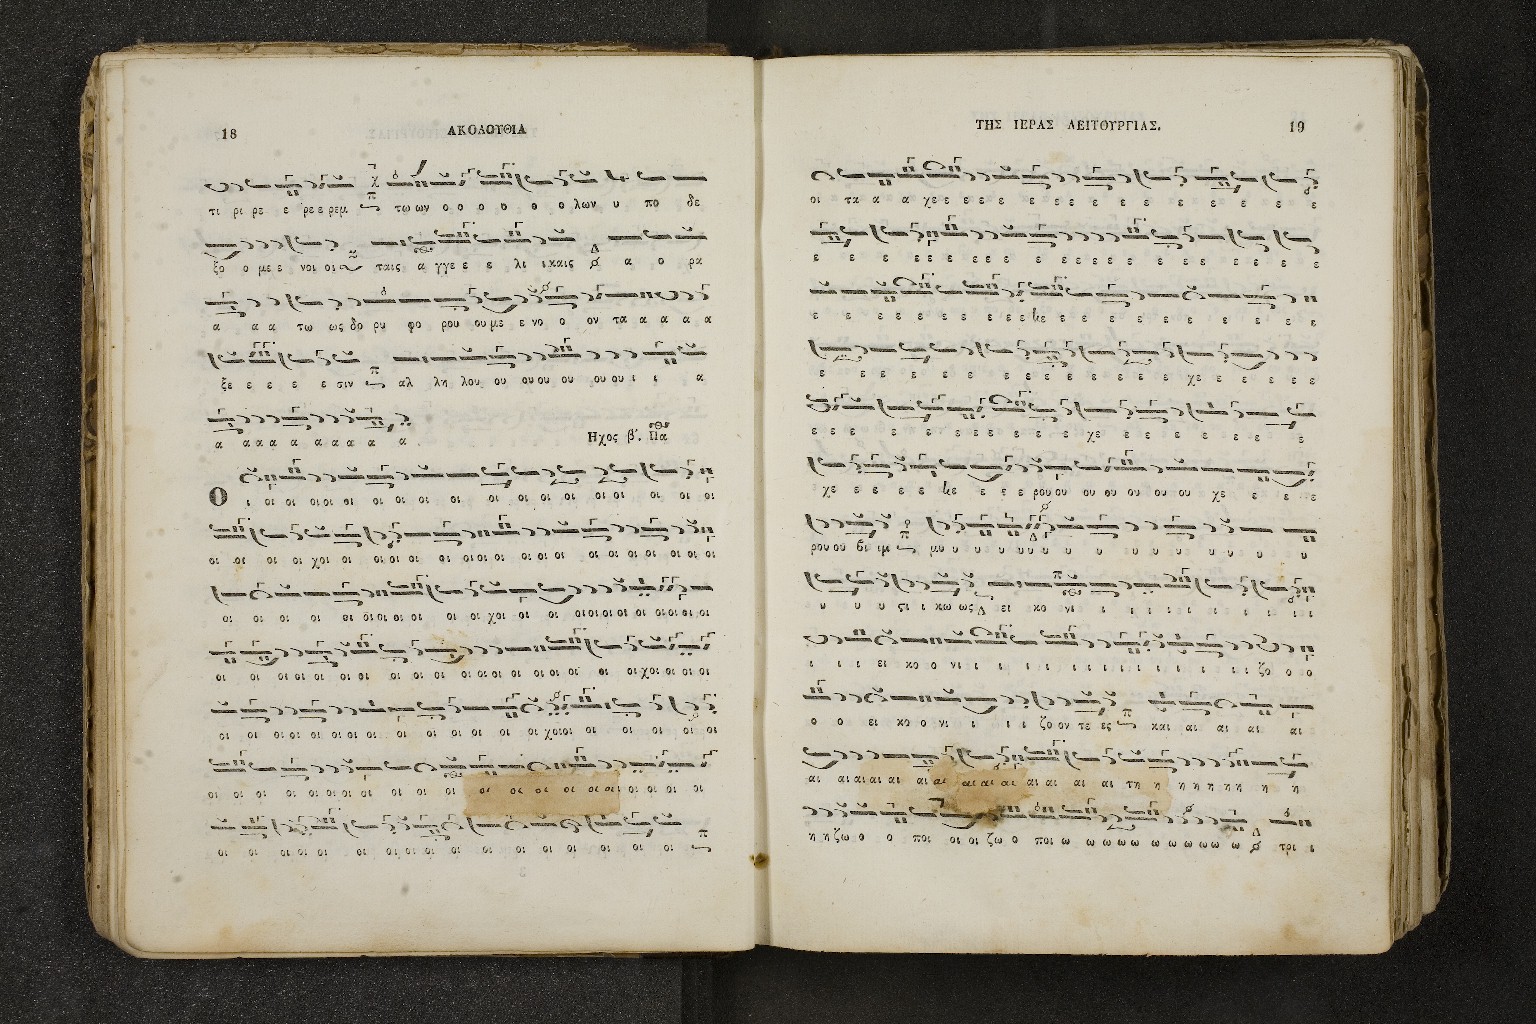 18
ΑΚΟΛΟΥΘΙΑ
τι ρι ρε ε ρε ε ρεμ τω ων ο ο ο ο ο ο λων υ πο δε
ξο ο με ε νοι οι ταις α γγε ε ε λι ι καις α ο ρα
α α α τω ως δο ρυ φο ρου ου με ε νο ο ον τα α α α α
ξε ε ε ε ε σιν αλ λη λου ου ου ου ου ου ου ι ι α
α α α α α α α α α α
Ηχος β΄. Πα
Ο ι οι οι οι οι οι οι οι οι οι οι οι οι οι οι οι οι οι οι οι
οι οι οι οι χοι οι οι οι οι οι οι οι οι οι οι οι οι οι οι οι οι οι οι
οι οι οι οι οι οι οι οι οι οι οι χοι οι οι οι οι οι οι οι οι οι οι οι
οι οι οι οι οι οι οι οι οι οι οι οι οι οι οι οι οι οι οι χοι οι οι οι
οι οι οι οι οι οι οι οι οι οι οι οι οι οι χοι οι οι οι οι οι οι
οι οι οι οι οι οι οι οι οι οι οι οι οι οι οι οι οι οι οι οι οι οι
οι οι οι οι οι οι οι οι οι οι οι οι οι οι οι οι
ΤΗΣ ΙΕΡΑΣ ΛΕΙΤΟΥΡΓΙΑΣ.
19
οι τα α α α χε ε ε ε ε ε ε ε ε ε ε ε ε ε ε
ε ε ε ε ε ε ε ε ε ε ε ε ε ε ε ε ε ε ε ε
ε ε ε ε ε ε ε ε ε ε ε ε ε ε ε ε ε ε ε ε
ε ε ε ε ε ε ε ε ε ε ε ε ε χε ε ε ε ε ε
ε ε ε ε ε ε ε ε ε ε ε χε ε ε ε ε ε ε ε
χε ε ε ε ε ε ε ε ρου ου ου ου ου ου ου χε ε ε ε
ρου ου βι ιμ μυ υ υ υ υ υ υ υ υ υ υ υ υ υ υ υ υ
υ υ υ στι ι κω ως ει κο νι ι ι ι ι ι ι ι ι ι
ι ι ι ει κο ο νι ι ι ι ι ι ι ι ι ι ι ι ι ι ζο ο ο
ο ο ει κο ο νι ι ι ι ζο ον τε ες και αι αι αι αι
αι αι αι αι αι αι αι αι αι αι αι αι αι αι τη η η η η η η η η
η η ζω ο ο ποι οι οι ζω ο ποι ω ω ω ω ω ω ω ω ω ω ω τρι ι